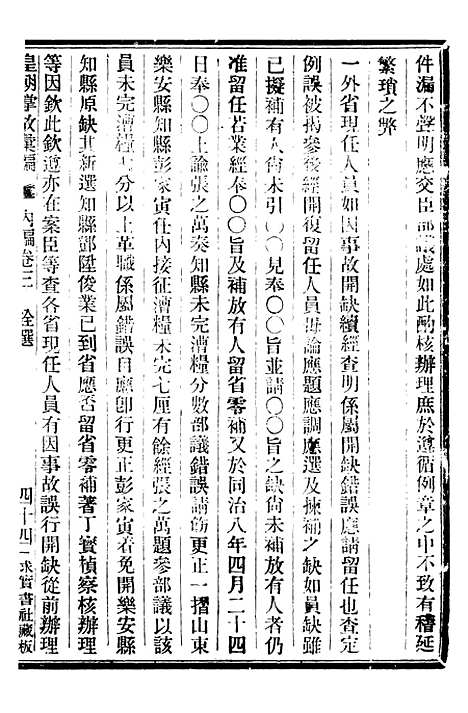 件漏不聲明應交臣部議處如此酌核辦理庶於遵循例章之中不致有稽延
繁瑣之弊
一外省現任人員如因事故開缺續經查明係屬開缺錯誤應請留任也查定
例誤被揭參後經開復留任人員毋論應題應調應選及揀補之缺如員缺雖
已擬補有人尙未引〇〇見奉〇〇旨並請〇〇旨之缺尙未補放有人者仍
准留任若業經奉〇〇旨及補放有人留省零補又於同治八年四月二十四
日奉〇〇上諭張之萬奏知縣未完漕糧分數部議錯誤請飭更正一摺山東
樂安縣知縣彭家寅任內接征漕糧未完七厘有餘經張之萬題參部議以該
員未完漕糧七分以上革職係屬錯誤自應卽行更正彭家寅着免開樂安縣
知縣原缺其新選知縣鄧陞俊業已到省應否留省零補著丁寶楨察核辦理
等因欽此欽遵亦在案臣等查各省現任人員有因事故誤行開缺從前辦理
皇朝掌故彙編 內編卷三 銓選 四十四 求實書社藏板